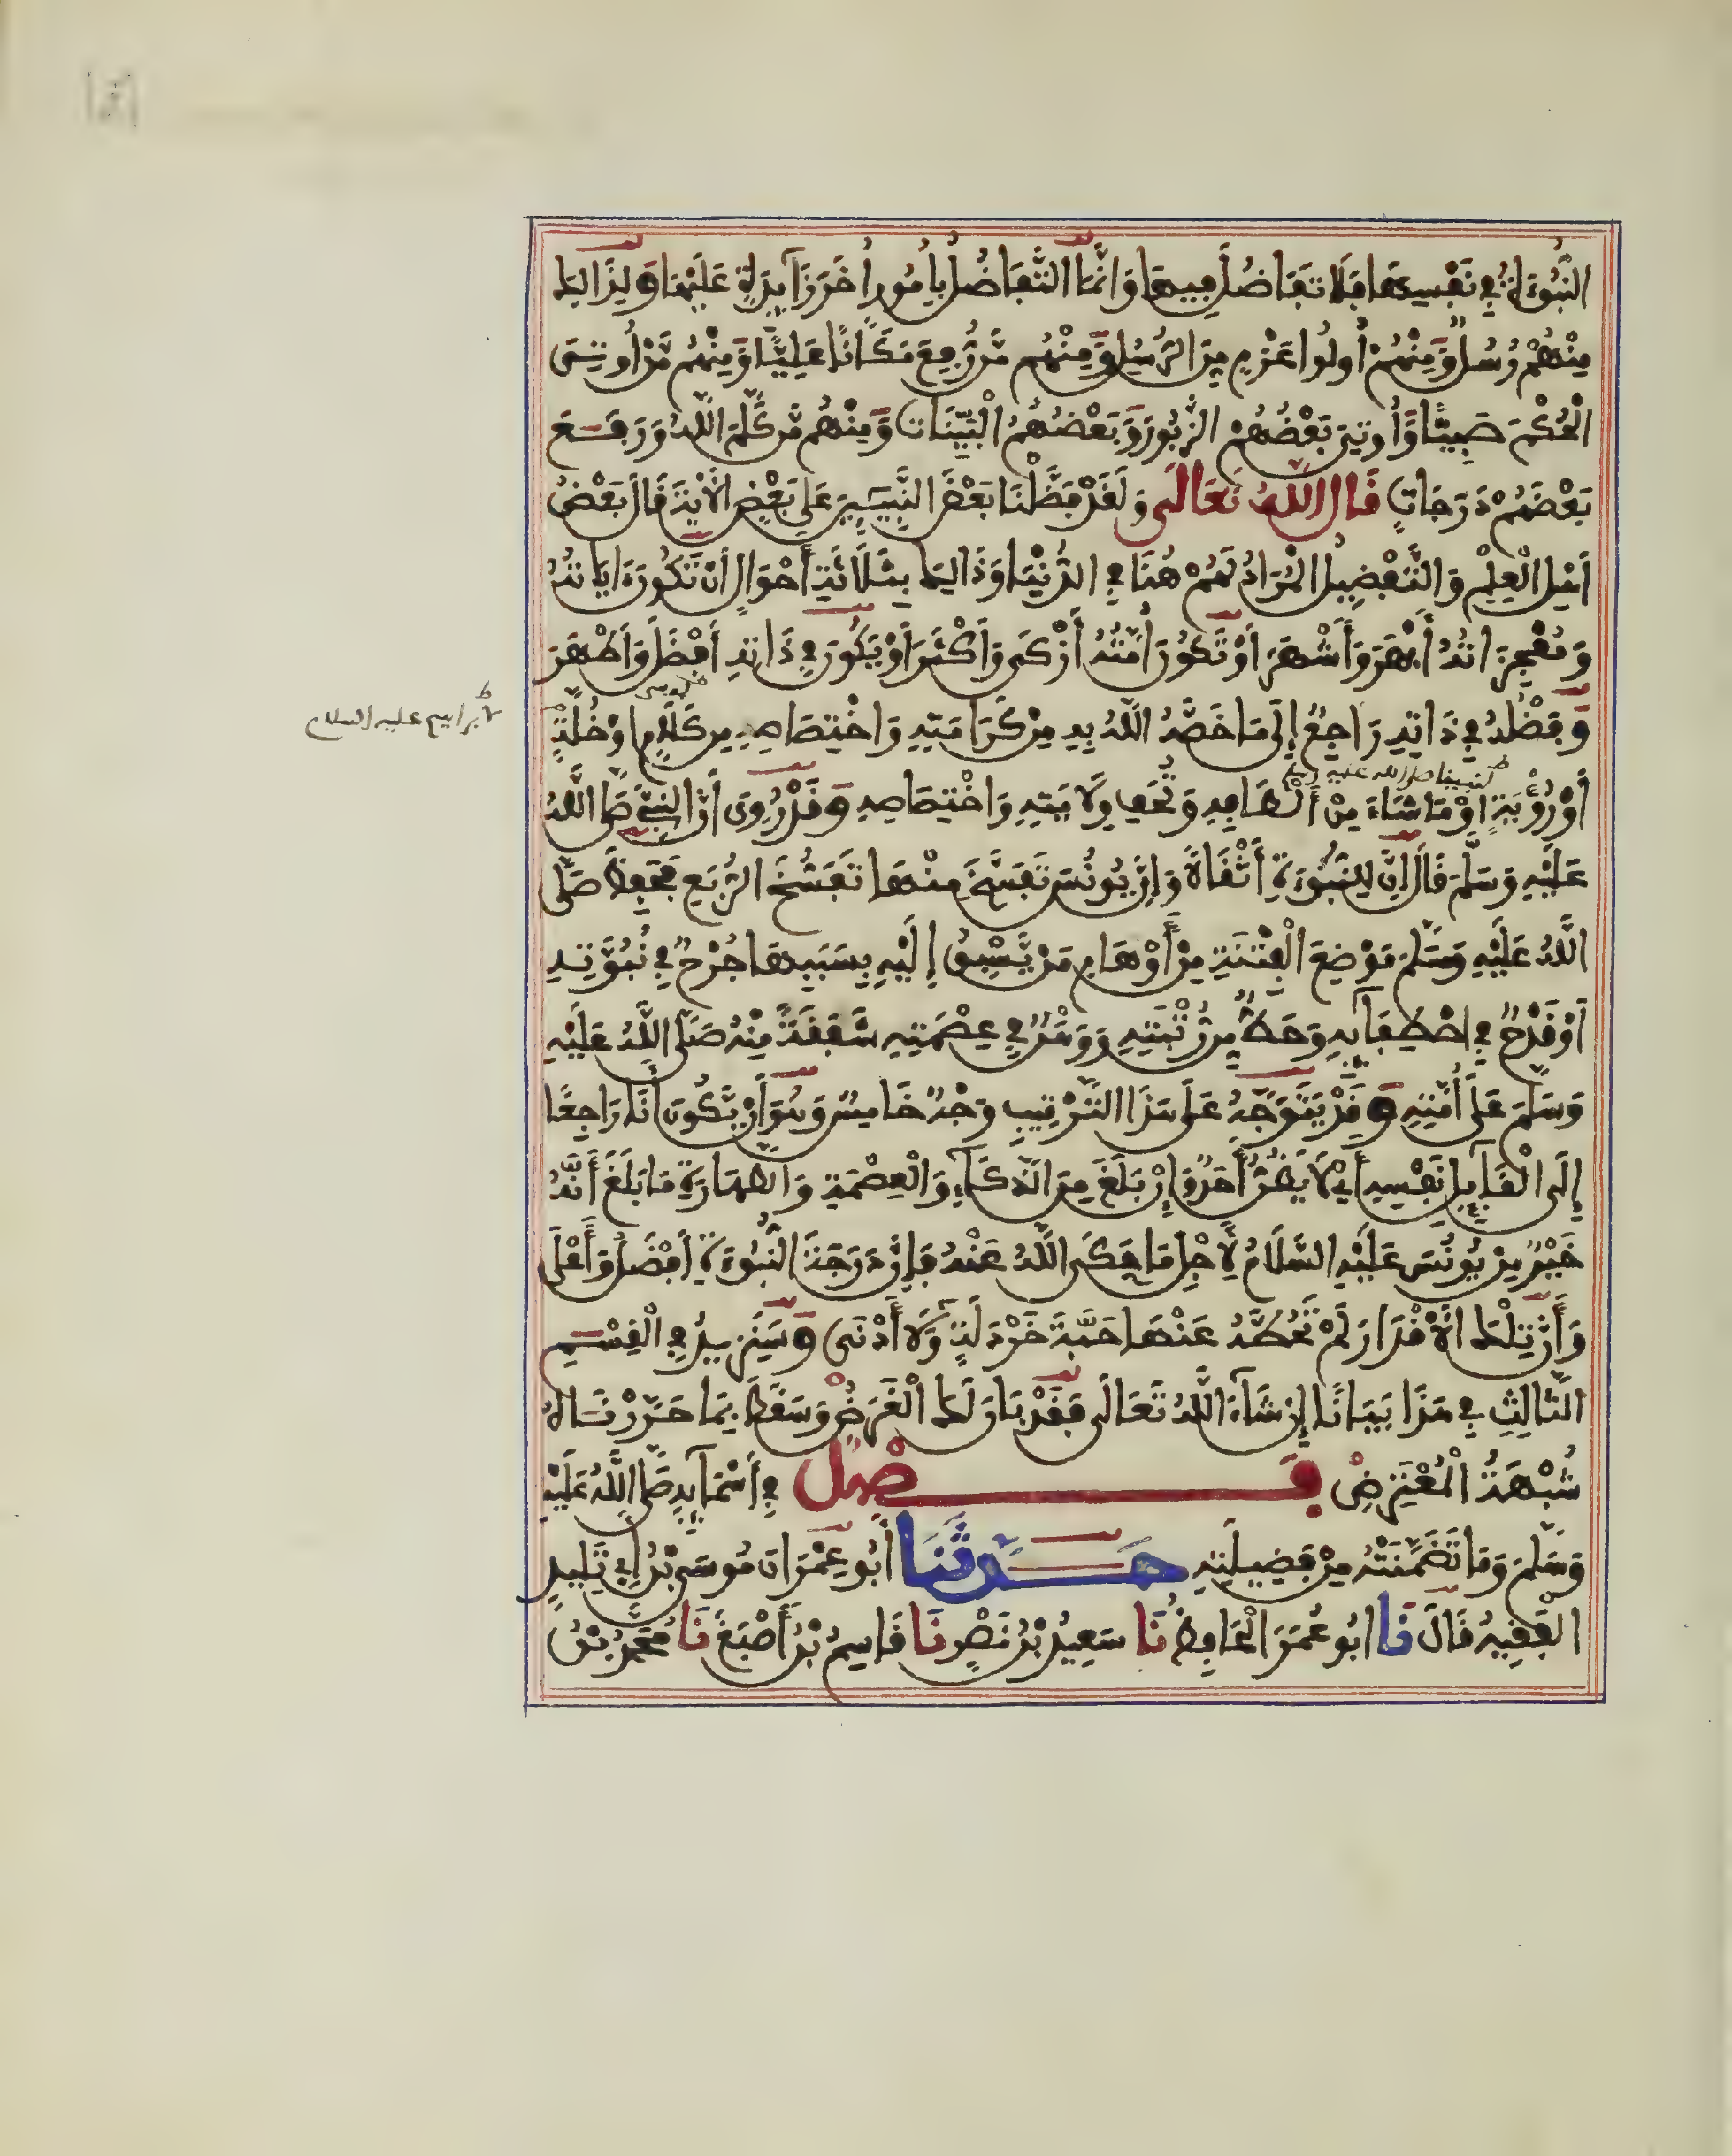 النُّبُوءَةُ فِي نَفْسِهَا فَلَا تَفَاضُلَ فِيهَا وَإِنَّمَا التَّفَاضُلُ بِأُمُورٍ أُخَرَ زَآيِدَةٍ عَلَيْهَا وَلِذَالِكَ
مِنْهُمْ رُسُلٌ وَّمِنْهُمْ أُولُوا عَزْمٍ مِنَ الرُّسُلِ وَمِنْهُم مَّن رُّفِعَ مَكَانًا عَلِيًّا وَّمِنْهُم مَّنْ أُوتِيَ
الْحُكْمَ صَبِيًّا وَّأُوتِيَ بَعْضُهُمُ الزَّبُورَ وَبَعْضُهُمُ الْبَيِّنَاتِ وَّمِنْهُم مَّن كَلَّمَ اللَّهُ وَرَفَعَ
بَعْضَهُمْ دَرَجَاتٍ قَالَ اللَّهُ تَعَالَى وَلَقَدْ فَضَّلْنَا بَعْضَ النَّبِيِّينَ عَلَى بَعْضٍ الْأيَةَ قَالَ بَعْضُ
أَهْلِ الْعِلْمِ وَالتَّفْضِيلُ الْمُرَادُ لَهُمْ هُنَا فِي الدُّنْيَا وَذَالِكَ بِثَلَاثَةِ أَحْوَالٍ أَن تَكُونَ ءَايَاتُهُ
وَمُعْجِزَاتُهُ أَبْهَرَ وَأَشْهَرَ أَوْ تَكُونَ أُمَّتُهُ أَزْكَى وَأَكْثَرَ أَوْ يَكُونَ فِي ذَاتِهِ أَفْضَلَ وَأَطْهَرَ
وَفَضْلُهُ فِي ذَاتِهِ رَاجِعٌ إِلَى مَا خَصَّهُ اللَّهُ بِهِ مِنْ كَرَامَتِهِ وَاخْتِصَاصِهِ مِن كَلَامٍ اوْ خُلَّةٍ
كموسى
كابراهيم عليه السلام
أَوْ رُؤْيَةٍ اوْ مَا شَاءَ مِنْ أَلْطَافِهِ وَتُحَفِ وِلَايَتِهِ وَاخْتِصَاصِهِ وَقَدْ رُوِيَ أَنَّ النَّبِيَّ صَلَّى اللَّهُ
كنبينا صلى الله عليه وسلم
عَلَيْهِ وَسَلَّمَ قَالَ إِنَّ لِلنُّبُوءَةِ أَثْقَالًا وَإِنَّ يُونُسَ تَفَسَّخَ مِنْهَا تَفَسُّخَ الرُّبَعِ فَحَفِظَ صَلَّى
اللَّهُ عَلَيْهِ وَسَلَّمَ مَوْضِعَ الْفِتْنَةِ مِنْ أَوْهَامِ مَن يَّسْبِقُ إِلَيْهِ بِسَبَبِهَا جُرْحٌ فِي نُبُوَّتِهِ
أَوْ قَدْحٌ فِي اصْطِفَآيِهِ وَحَطٌّ مِن رُّتْبَتِهِ وَوَهْنٌ فِي عِصْمَتِهِ شَفَقَةً مِّنْهُ صَلَّى اللَّهُ عَلَيْهِ
وَسَلَّمَ عَلَى أُمَّتِهِ وَقَدْ يَتَوَجَّهُ عَلَى هَذَا التَّرْتِيبِ وَجْهٌ خَامِسٌ وَهُوَ أَن يَّكُونَ أَنَا رَاجِعًا
إِلَى الْقَآيِلِ نَفْسِهِ أَيْ لَا يَظُنُّ أَحَدٌ وَإِنْ بَلَغَ مِنَ الذَّكَآءِ وَالْعِصْمَةِ وَالطَّهَارَةِ مَا بَلَغَ أَنَّهُ
خَيْرٌ مِنْ يُونُسَ عَلَيْهِ السَّلَامُ لِأَجْلِ مَا حَكَى اللَّهُ عَنْهُ فَإِنَّ دَرَجَةَ النُّبُوءَةِ أَفْضَلُ وَأَعْلَى
وَأَنَّ تِلْكَ الْأَقْدَارَ لَمْ تَحُطَّهُ عَنْهَا حَبَّةَ خَرْدَلَةٍ وَّلَا أَدْنَى وَسَنَزِيدُ فِي الْقِسْمِ
الثَّالِثِ فِي هَذَا بَيَانًا إِن شَآءَ اللَّهُ تَعَالَى فَقَدْ بَانَ لَكَ الْغَرَضُ وَسَقَطَ بِمَا حَرَّرْنَاهُ
شُبْهَةُ الْمُعْتَرِضِ فَصْلٌ فِي أَسْمَآيِهِ صَلَّى اللَّهُ عَلَيْهِ
وَسَلَّمَ وَمَا تَضَمَّنَتْهُ مِنْ فَضِيلَتِهِ حَدَّثَنَا أَبُو عِمْرَانَ مُوسَى بْنُ أَبِي تَلِيدٍ
الْفَقِيهُ قَالَ نَا ابُو عُمَرَ الْحَافِظُ نَا سَعِيدُ بْنُ نَصْرٍ نَا قَاسِمُ بْنُ أَصْبَغَ نَا مُحَمَّدُ بْنُ